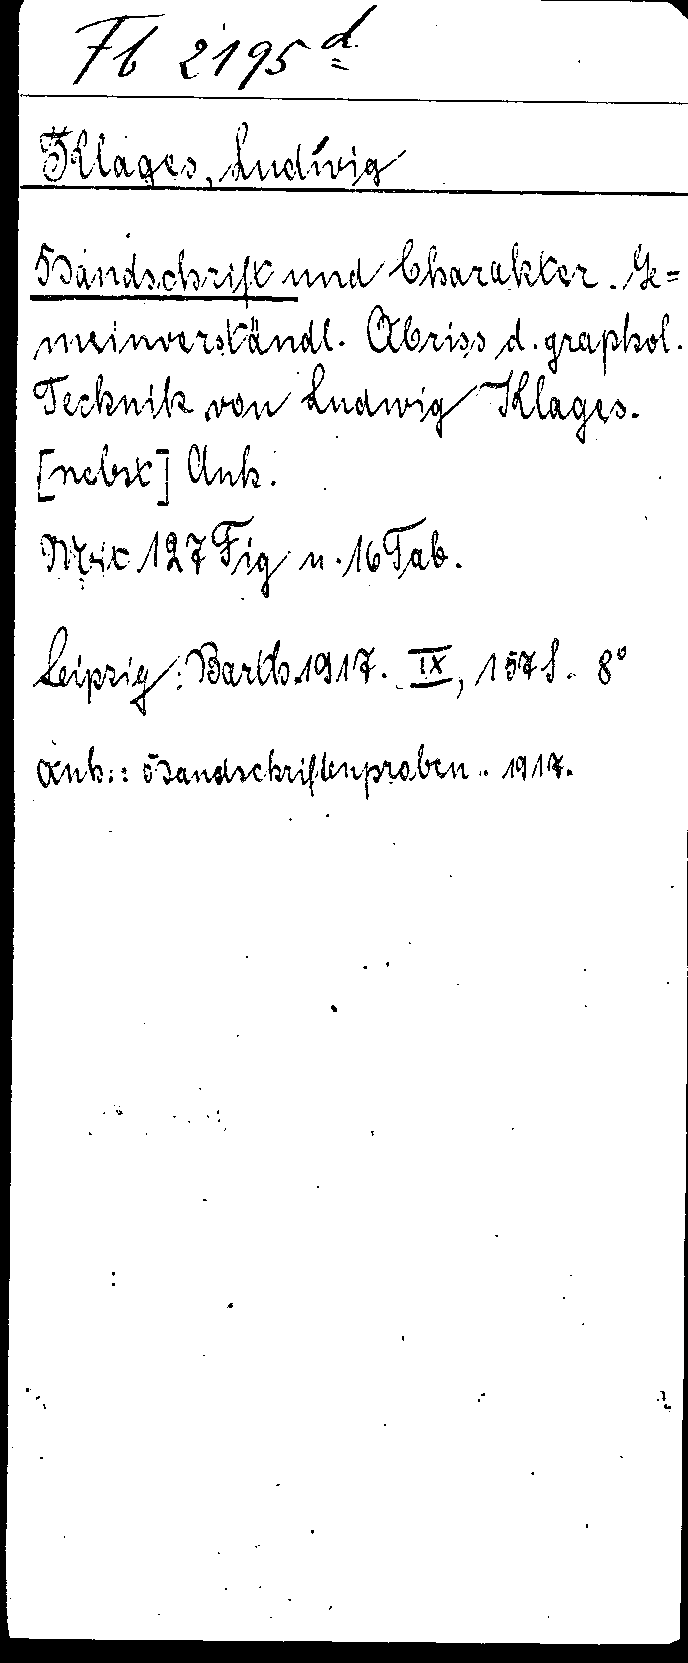 Fb 2195 d
Klages, Ludwig
Handschrift und Charakter. Ge=
meinverständl. Abriss d. graphol.
Technik von Ludwig Klages.
[nebst] Anh.
Mit 127 Fig u. 16 Tab.
Leipzig: Barth 1917. IX, 157 S. 8°
Anh.: Handschriftenproben. 1917.